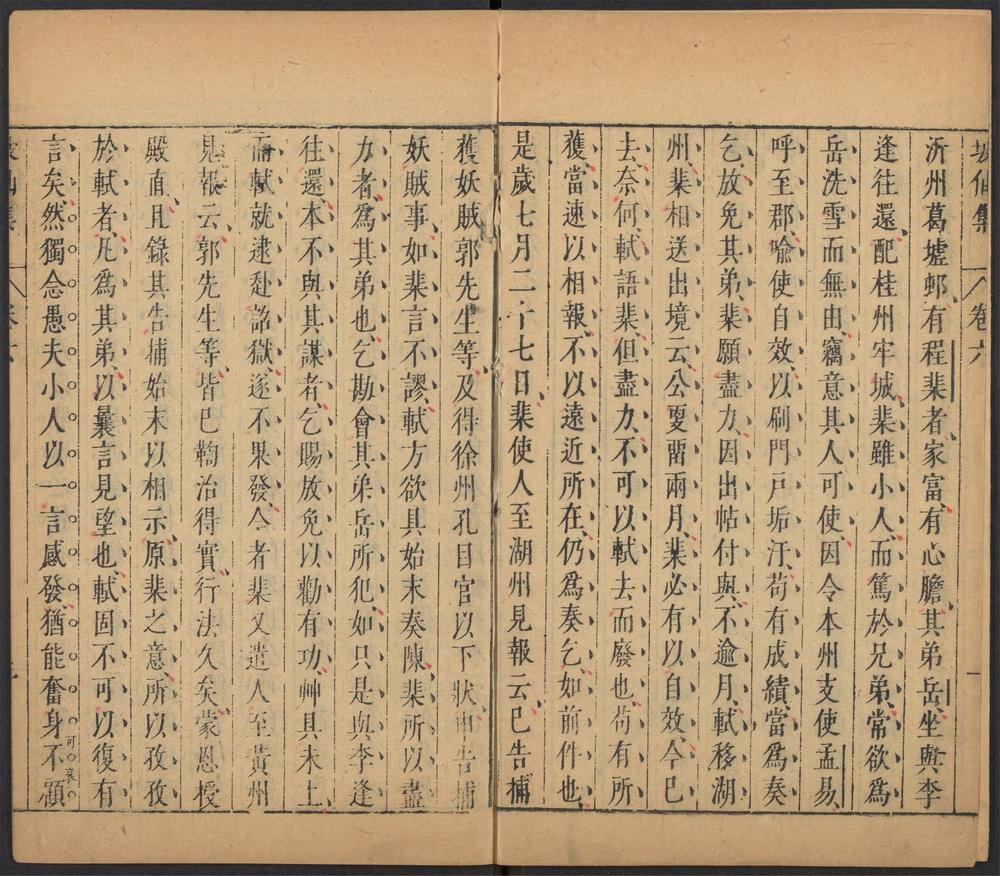 坡仙集 卷六 一
沂州葛墟邨有程棐者家富有心膽其弟岳坐與李
逢往還配桂州牢城棐雖小人而篤於兄弟常欲爲
岳洗雪而無由竊意其人可使因令本州支使孟易
呼至郡喻使自效以刷門戶垢汙苟有成績當爲奏
乞放免其弟棐願盡力因出帖付與不逾月軾移湖
州棐相送出境云公更畱兩月棐必有以自效今已
去奈何軾語棐但盡力不可以軾去而廢也苟有所
獲當速以相報不以遠近所在仍爲奏乞如前件也
是歲七月二十七日棐使人至湖州見報云已告捕
獲妖賊郭先生等及得徐州孔目官以下狀申告捕
妖賊事如棐言不謬軾方欲具始末奏陳棐所以盡
力者爲其弟也乞勘會其弟岳所犯如只是與李逢
往還本不與其謀者乞賜放免以勸有功艸具未上
而軾就逮赴詔獄遂不果發今者棐又遣人至黃州
見報云郭先生等皆已鞫治得實行決久矣蒙恩授
殿直且錄其告捕始末以相示原棐之意所以孜孜
於軾者凡爲其弟以曩言見望也軾固不可以復有
言矣然獨念愚夫小人以一言感發猶能奮身不顧
可哀